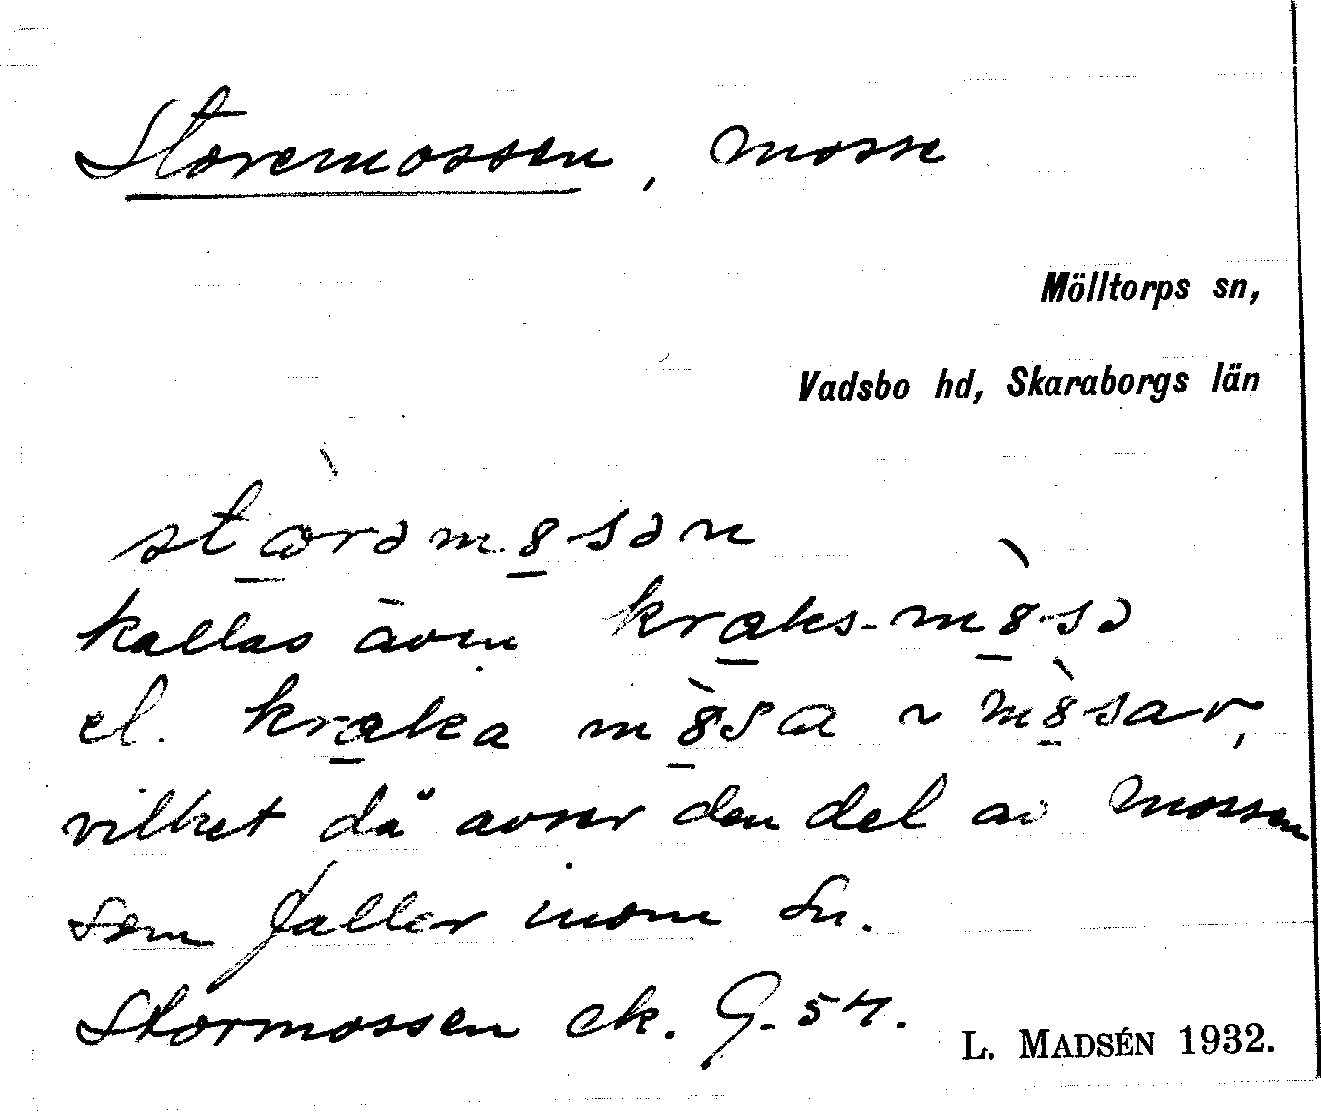 Storemossen, mosse
Mölltorps sn,
Vadsbo hd, Skaraborgs län
stòrəm8sən
kallas även kraks-m8̀sə
el. kraka m8̀sa ~ m8̀sar,
vilket då avser den del av mossen
som faller inom sn.
Stormossen ek. G. 54.
L. MADSÉN 1932.